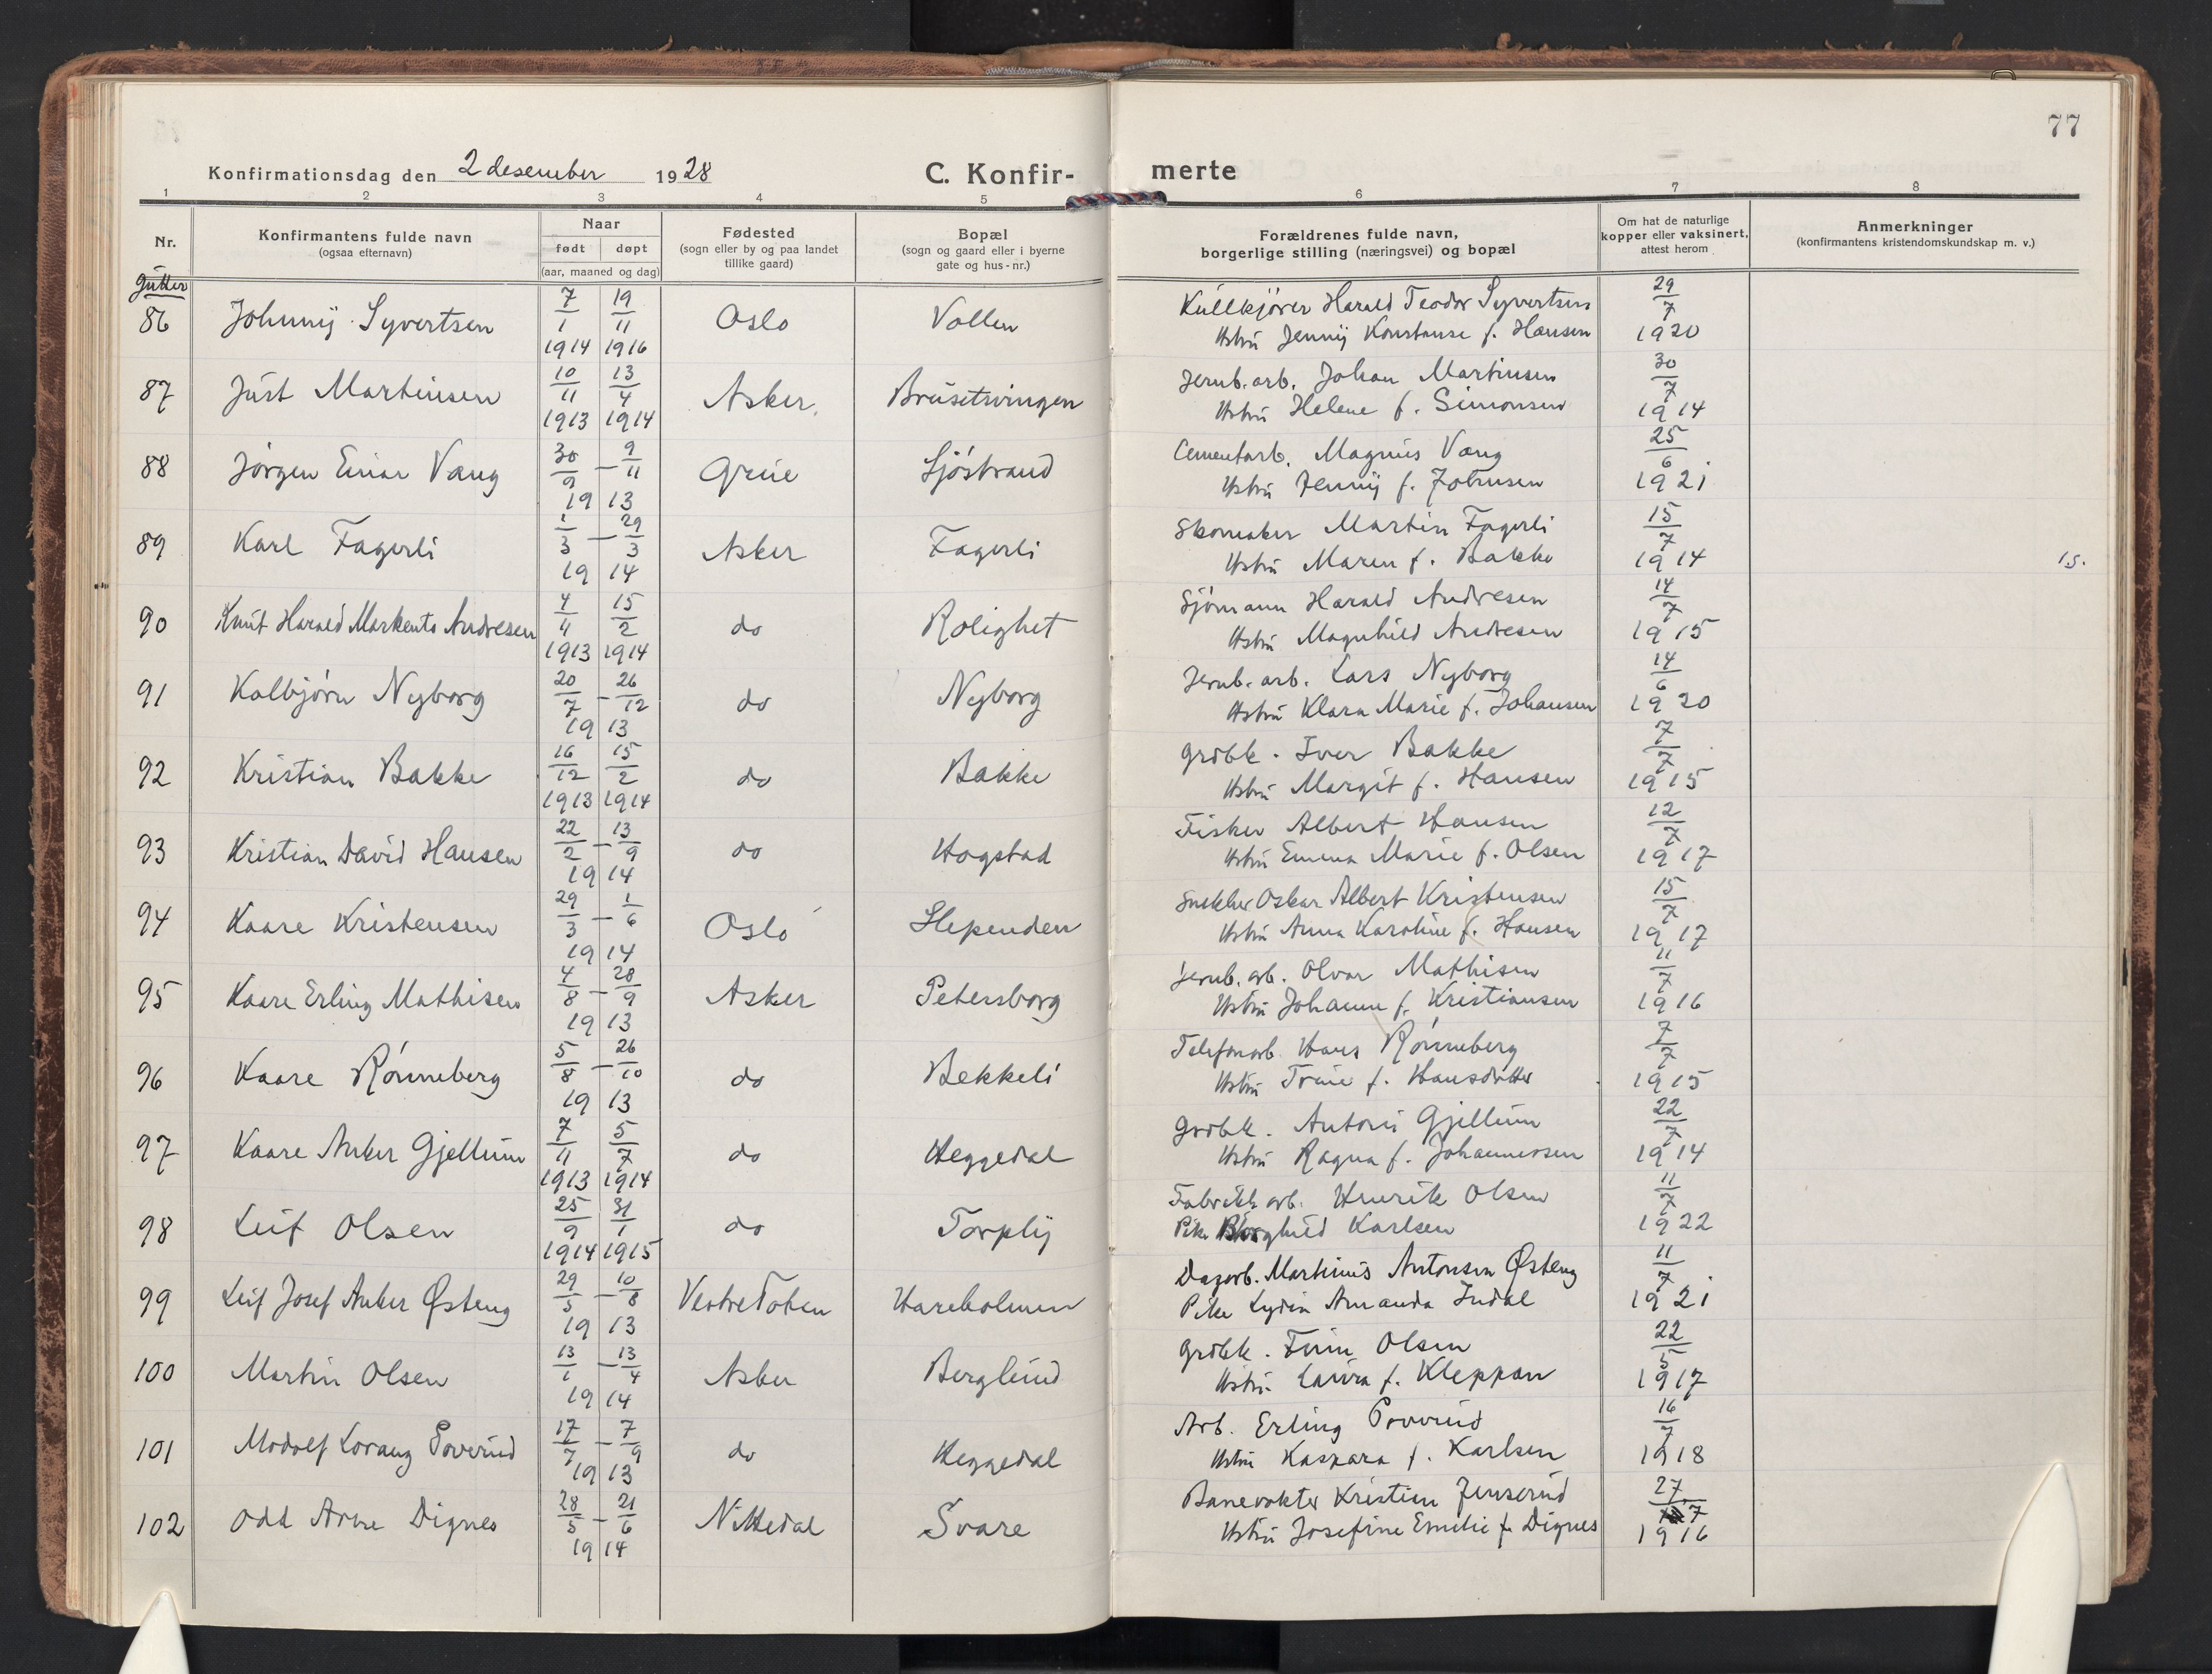 77
Konfirmationsdag den 2 desember 1928 C. Konfir- merte
1 2 3 4 5 6 7 8
Nr. Konfirmantens fulde navn (ogsaa efternavn) Naar født døpt (aar, maaned og dag) Fødested (sogn eller by og paa landet tillike gaard) Bopæl (sogn og gaard eller i byerne gate og hus-nr.) Forældrenes fulde navn, borgerlige stilling (næringsvei) og bopæl Om hat de naturlige kopper eller vaksinert, attest herom Anmerkninger (konfirmantens kristendomskundskap m. v.)
Gutter
86 Johnny Syvertsen 7/1 1914 19/11 1916 Oslo Vollen Kullkjører Harald Teodor Syvertsen 29/7
Hstru Jenny Konstanse f. Hansen 1920
87 Just Martinsen 10/11 1913 13/4 1914 Asker Brusetsvingen Jernb. arb. Johan Martinsen 30/7
Hstru Helene f. Simonsen 1914
88 Jørgen Einar Vang 30/9 – 9/11 1913 Grue Sjøstrand Cementarb. Magnus Vang 25/6
Hstru Jenny f. Johnsen 1921
89 Karl Fagerli 1/3 – 29/3 1914 Asker Fagerli Skomaker Martin Fagerli 15/7
Hstru Maren f. Bakke 1914 15.
90 Knut Harald Markents Andresen 4/4 1913 15/2 1914 do Rolighet Sjømann Harald Andresen 14/7
Hstru Magnhild Andresen 1915
91 Kolbjørn Nyborg 20/7 – 26/12 1913 do Nyborg Jernb. arb. Lars Nyborg 14/6
Hstru Klara Marie f. Johansen 1920
92 Kristian Bakke 16/12 1913 15/2 1914 do Bakke Grdbk. Iver Bakke 7/7
Hstru Margit f. Hansen 1915
93 Kristian David Hansen 22/2 – 13/9 1914 do Hogstad Fisker Albert Hansen 12/7
Hstru Emma Marie f. Olsen 1917
94 Kaare Kristensen 29/3 – 1/6 1914 Oslo Slependen Snekker Oskar Albert Kristensen 15/7
Hstru Anna Karoline f. Hansen 1917
95 Kaare Erling Mathisen 4/8 – 28/9 1913 Asker Petersborg Jernb. arb. Olvar Mathisen 11/7
Hstru Johanne f. Kristiansen 1916
96 Kaare Rønneberg 5/8 – 26/10 1913 do Bekkeli Telefonarb. Hans Rønneberg 7/7
Hstru Trine f. Hansdatter 1915
97 Kaare Anker Gjellum 7/11 1913 5/7 1914 do Heggedal Grdbk. Anton Gjellum 22/7
Hstru Ragna f. Johannessen 1914
98 Leif Olsen 25/9 1914 31/1 1915 do Torply Fabrikk arb. Henrik Olsen 11/7
Pike Borghild Karlsen 1922
99 Leif Josef Anker Østeng 29/5 – 10/8 1913 Vestre Toten Hareholmen Dagarb. Martinus Antonsen Østeng 11/7
Pike Lydia Amanda Indal 1921
100 Martin Olsen 13/1 – 13/4 1914 Asker Berglund Grdbk. Finn Olsen 22/5
Hstru Laura f. Kleppan 1917
101 Modolf Lorang Poverud 17/7 – 7/9 1913 do Heggedal Arb. Erling Poverud 16/7
Hstru Kaspara f. Karlsen 1918
102 Odd Arne Dignes 28/5 – 21/6 1914 Nittedal Svare Banevokter Kristian Jenserud 27/7
Hstru Josefine Emilie f. Dignes 1916